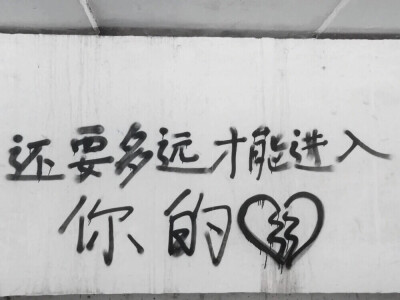 还要多远才能进入
你的